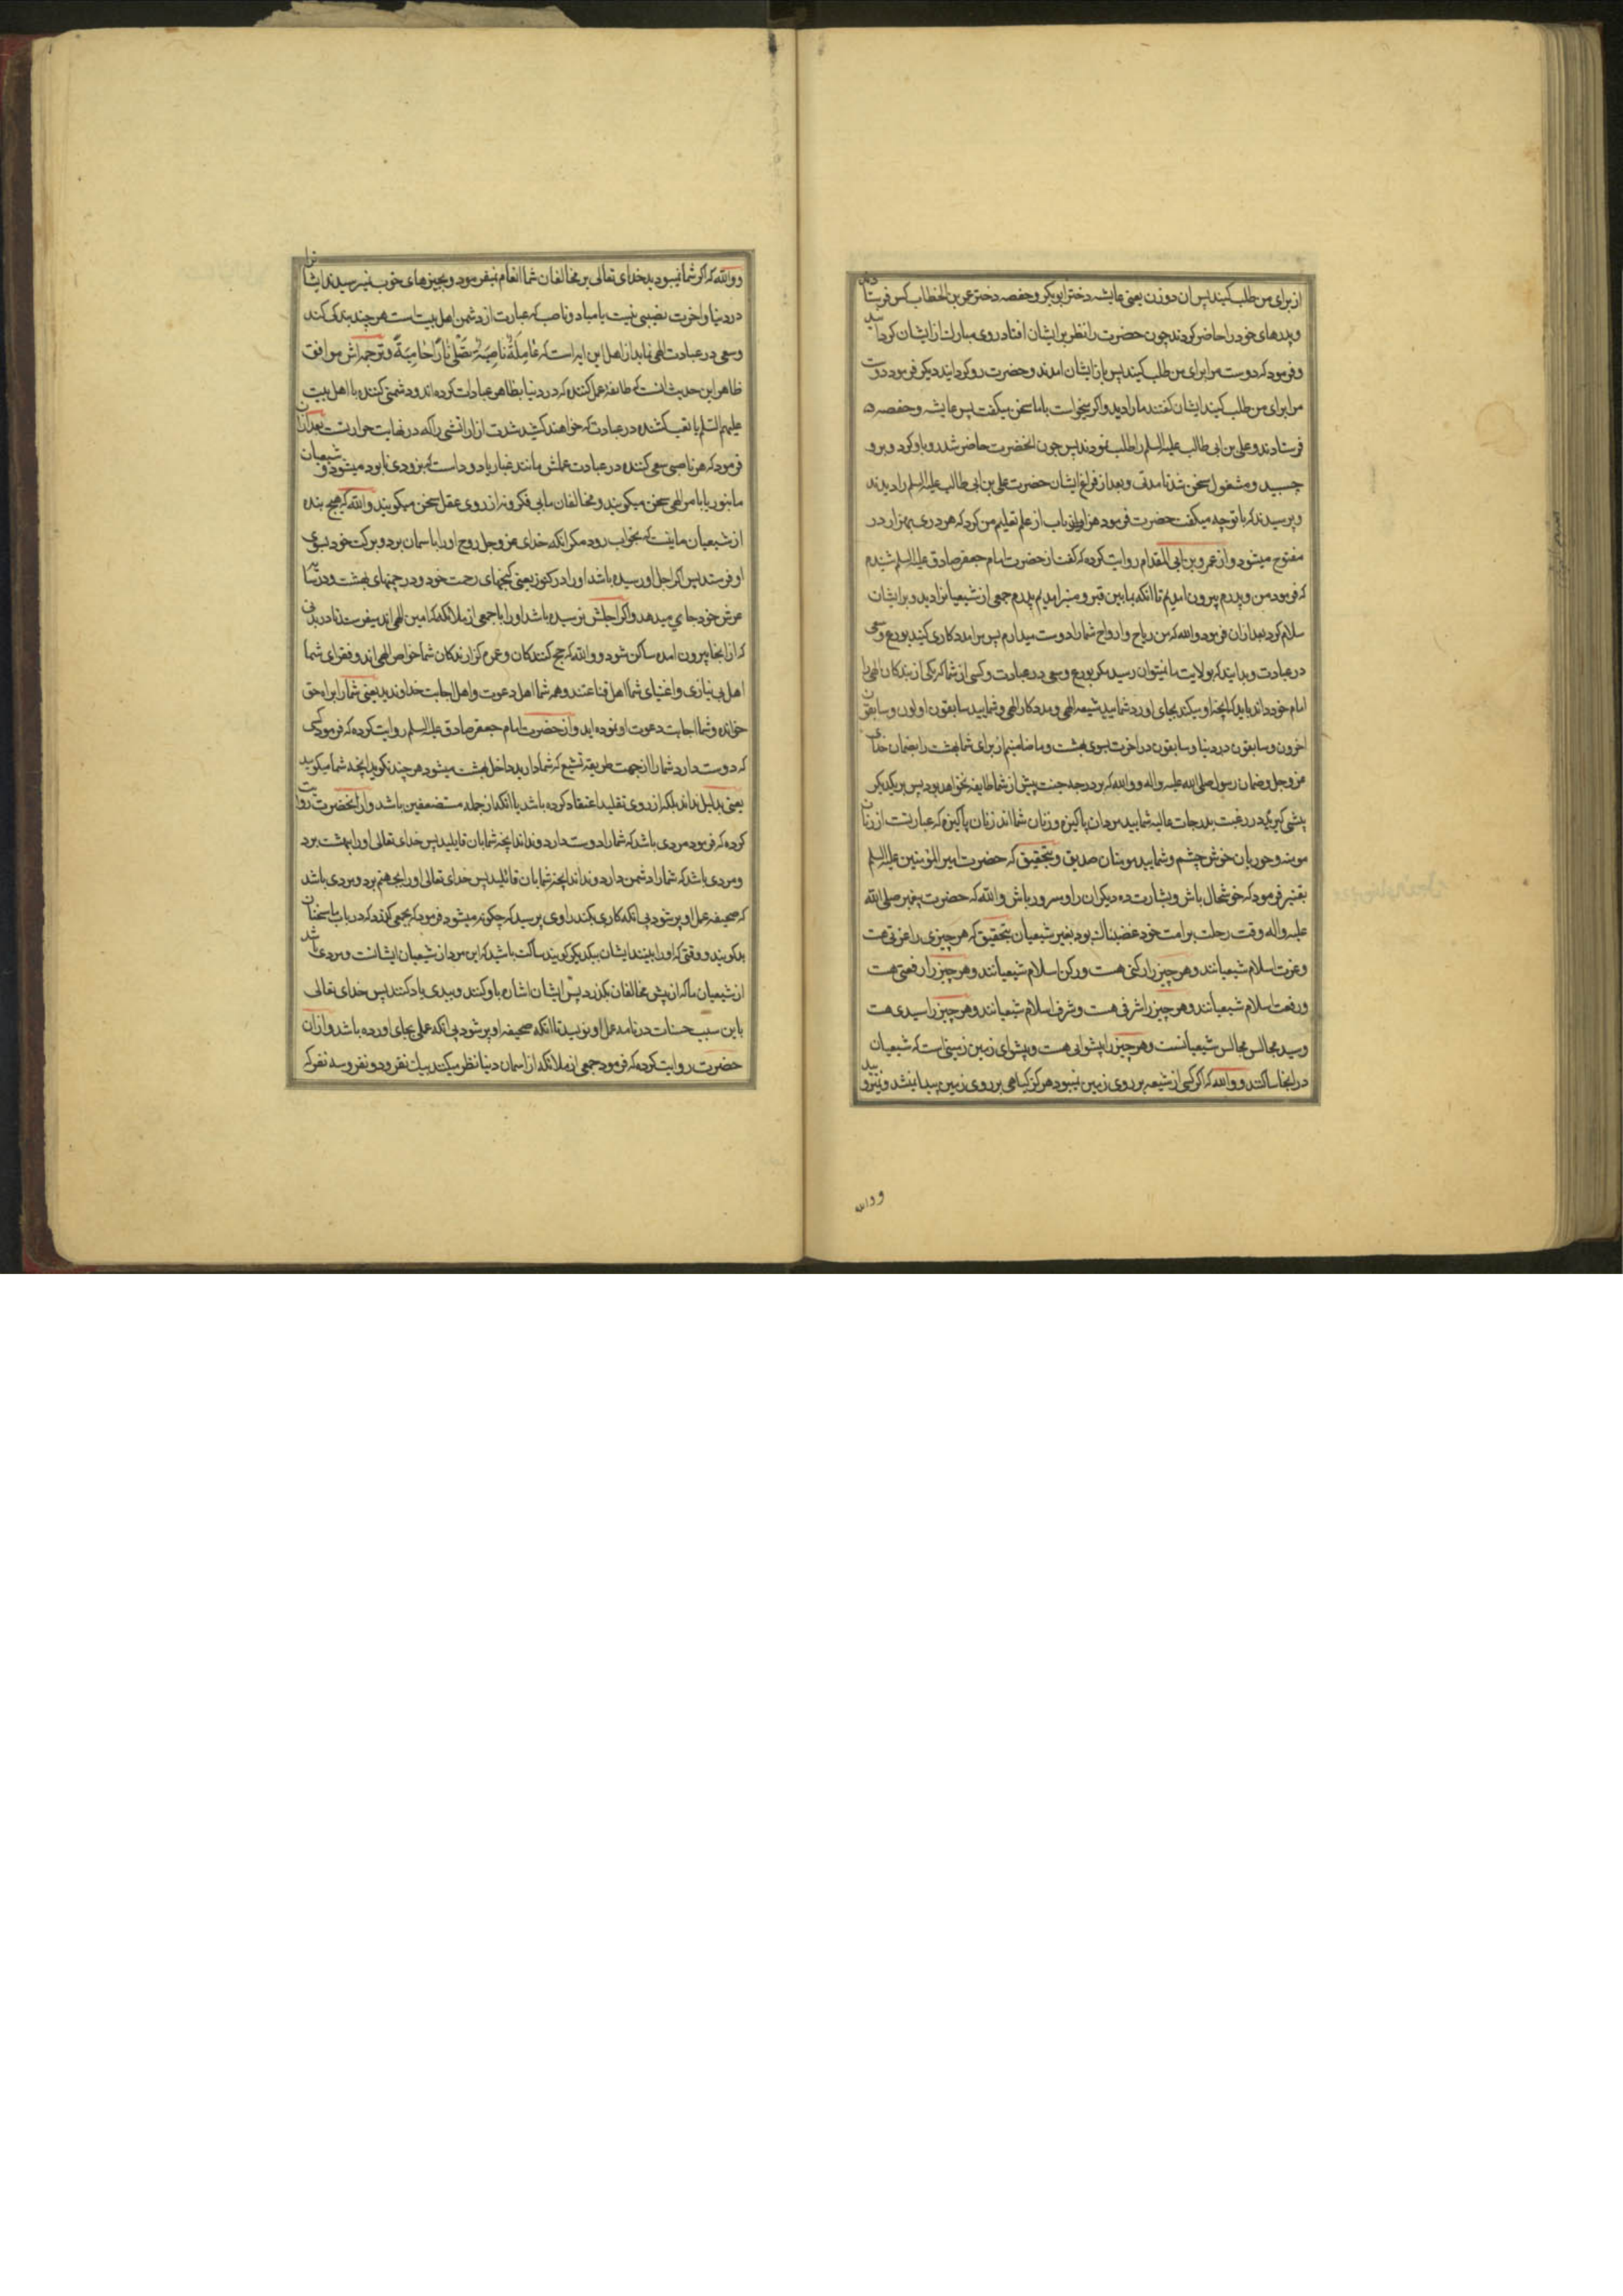 از برای من طلب کنید پس ان دو زن یعنی عایشه دختر ابوبکر و حفصه دختر عمر بن الخطاب کس فرستادند
و پدرهای خود را حاضر کردند چون حضرت را نظر بر ایشان افتاد روی مبارک از ایشان کردانید
و فرمود که دوست مرا برای من طلب کنید پس باز ایشان امدند و حضرت رو کردانید دیکر فرمود دوست
مرا برای من طلب کنید ایشان کفتند ما را دید و اکر میخواست با ما سخن میکفت پس عایشه و حفصه
فرستادند و علی بن ابی طالب علیه السلم را طلب نمودند پس چون انحضرت حاضر شد رو باو کرد و برو
چسبید و مشغول سخن شد تا مدتی و بعد از فراغ ایشان حضرت علی بن ابی طالب علیه السلم را دیدند
و پرسیدند که با تو چه میکفت حضرت فرمود هزار باب از علم تعلیم من کرد که هر دری بهزار در
مفتوح میشود و از عمرو بن ابی المقدام روایت کرده که کفت از حضرت امام جعفر صادق علیه السلم شنیدم
که فرمود من و پدرم بیرون امدیم تا انکه بما بین قبر و منبر امدیم پدرم جمعی از شیعیانرا دید و بر ایشان
سلام کرد بعد از ان فرمود والله که من ریاح و ارواح شما را دوست میدارم پس مرا مددکاری کنید بورع و سعی
در عبادت و بدانید که بولایت ما نمیتوان رسید مکر بورع و سعی در عبادت و کسی از شما که یکی از بندکان الهی را
امام خود داند باید که انچه او میکند بجای اورد شمایید شیعه الهی و مددکار الهی و شمایید سابقون اولون و سابقون
اخرون و سابقون در دنیا و سابقون در اخرت بسوی بهشت و ما ضامنیم از برای شما بهشت را بضمان خدای
عز و جل و ضمان رسول صلی الله علیه و اله و والله که بر درجه جنت پیش از شما طایفه نخواهد بود پس بر یکدیکر
پیشی کیرید در رغبت بدرجات عالیه شمایید مردان پاکیزه و زنان شما اند زنان پاکیزه که عبارتست از زنان
مومنه و حوریان خوش چشم و شمایید مومنان صدیق و بتحقیق که حضرت امیر المومنین علیه السلم
بقنبر فرمود که خوشحال باش و بشارت ده دیکران را و مسرور باش والله که حضرت پیغمبر صلی الله
علیه و اله وقت رحلت بر امت خود غضبناک بود بغیر شیعیان بتحقیق که هر چیزی را عزتی هست
و عزت اسلام شیعیانند و هر چیز را رکنی هست و رکن اسلام شیعیانند و هر چیز را رفعتی هست
و رفعت اسلام شیعیانند و هر چیز را شرفی هست و شرف اسلام شیعیانند و هر چیز را سیدی هست
و سید مجالس مجالس شیعیانست و هر چیز را پیشوایی هست و پیشوای زمین زمینی است که شیعیان
در انجا ساکنند و والله که اکر کسی از شیعه بر روی زمین نمیبود هرکز کیاهی بر روی زمین پیدا نمیشد و نمیرویید
و والله
و والله که اکر شما نمیبودید خدای تعالی بر مخالفان شما انعام نمیفرمود و بچیزهای خوب نمیرسیدند ایشانرا
در دنیا و اخرت نصیبی نیست یا میاد و ناصب که عبارت از دشمن اهل بیت است هر چند بندکی کند
و سعی در عبادت الهی نماید از اهل این ایه است که عَامِلَةٌ نَاصِبَةٌ تَصْلَىٰ نَارًا حَامِيَةً و ترجمه اش موافق
ظاهر این حدیث انست که طائفه عمل کننده که در دنیا بظاهر عبادات کرده اند و دشمنی کننده با اهل بیت
علیهم السلم یا تعب کشنده در عبادت که خواهند کشید شدت ازار اتشی را که در نهایت حرارتست بعد از ان
فرمود که هر ناصبی سعی کننده در عبادت عملش مانند غبار یاد و داست که بزودی نابود میشود و شیعیان
ما بنور یا بامر الهی سخن میکویند و مخالفان ما بی فکر و نه از روی عقل سخن میکویند والله که هیچ بنده
از شیعیان ما نیست که بخواب رود مکر انکه خدای عز و جل روح او را باسمان برد و برکت خود بسوی
او فرستد پس اکر اجل او رسیده باشد او را در کنوز یعنی کنجهای رحمت خود و در چمنهای بهشت و در سایه
عرش خود جای میدهد و اکر اجلش نرسیده باشد او را با جمعی از ملائکه که امین الهی اند میفرستد تا در بدنی
که از انجا بیرون امده ساکن شود و والله که حج کنندکان و عمره کزارندکان شما خواص الهی اند و فقرای شما
اهل بی نیازی و اغنیای شما اهل قناعتند و همه شما اهل دعوت و اهل اجابت خداوندید یعنی شما را براه حق
خوانده و شما اجابت دعوت او نموده اید و از حضرت امام جعفر صادق علیه السلم روایت کرده که فرمود کسی
که دوست دارد شما را از جهت طریقه تشیع که شما دارید داخل بهشت میشود هر چند نکوید انچه شما میکویید
یعنی بدلیل نداند بلکه از روی تقلید اعتقاد کرده باشد یا انکه از جمله مستضعفین باشد و از انحضرت روایت
کرده که فرمود مردی باشد که شما را دوست دارد و نداند انچه شما بان قایلید پس خدای تعالی او را ببهشت برد
و مردی باشد که شما را دشمن دارد و نداند انچه شما بان قائلید پس خدای تعالی او را بجهنم برد و مردی باشد
که صحیفه عمل او پر شود بی انکه کاری بکند راوی پرسید که چکونه میشود فرمود که بجمعی کذرد که در باب ما سخنان
بد کویند و وقتی که او را ببینند ایشان بیکدیکر کویند ساکت باشید که این مرد از شیعیان ایشانست و مردی باشد
از شیعیان ما که از پیش مخالفان بکذرد پس ایشان اشاره باو کنند و ببدی یاد کنند پس خدای تعالی
باین سبب حسنات در نامه عمل او نویسد تا انکه صحیفه او پر شود بی انکه عملی بجای اورده باشد و از ان
حضرت روایت کرده که فرمود جمعی از ملائکه از اسمان دنیا نظر میکنند بیک نفر و دو نفر و سه نفر که